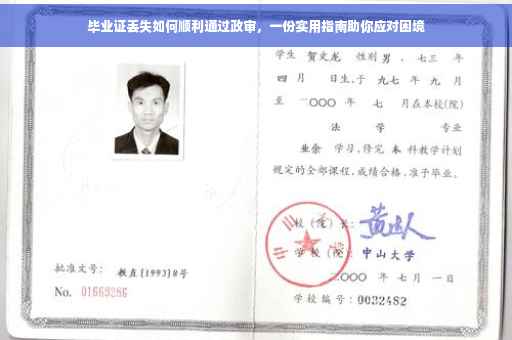 毕业证丢失如何顺利通过政审，一份实用指南助你应对困境
学生 贺文龙 性别 男 、七三 年
四 月 日生,于 九七 年 九 月
至 二〇〇〇 年 七 月在本校(院)
法 学 专业
业余 学习,修完 本 科教学计划
规定的全部课程,成绩合格,准予毕业。
校(院)长:
学校(院): 中山大学
二〇〇〇 年 七 月 一 日
学校编号: 0032482
批准文号: 教直[1993]8号
No. 01669286